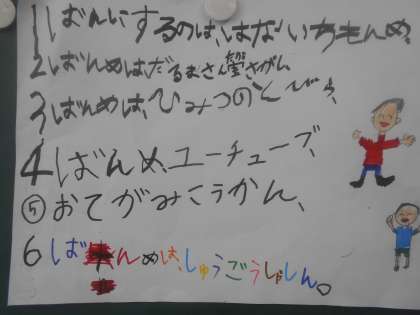 1ばんにするのは、はないちもんめ、
2ばんめはだるまさん宝さがし、
3ばんめは、ひみつのとびら、
4ばんめ、ユーチューブ、
⑤おてがみこうかん、
6ばんめは、しゅうごうしゃしん。